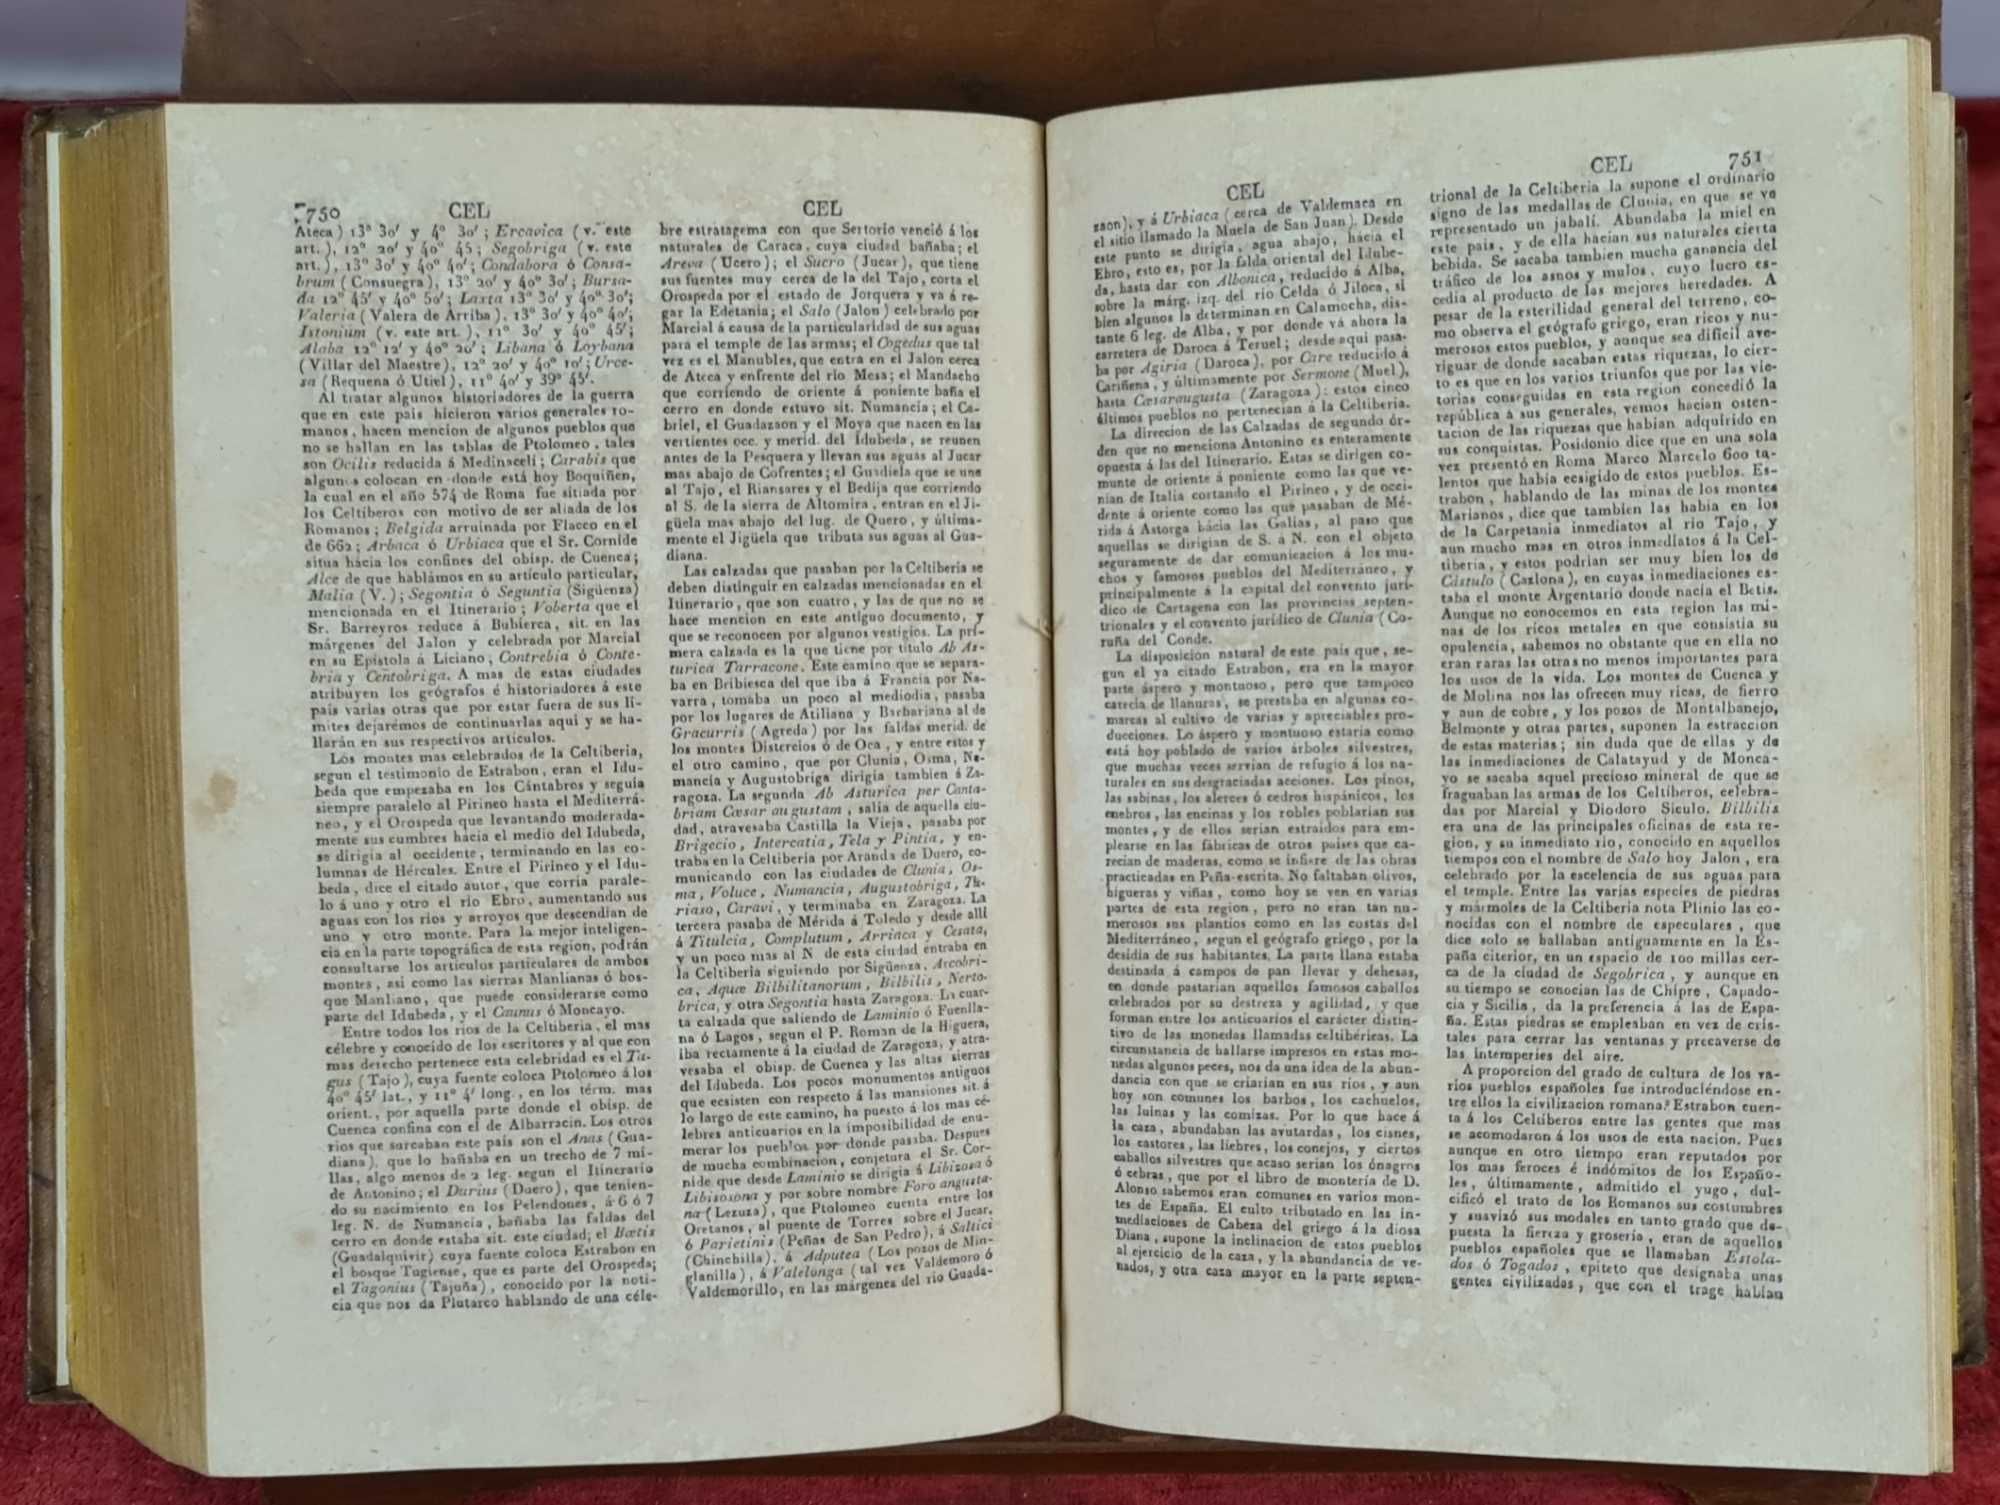 750 CEL CEL
Ateca) 13º 30' y 4º 30'; Ercavica (v. este
art.), 12º 20' y 40º 45; Segobriga (v. este
art.), 13º 30' y 40º 40'; Condabora ó Consa-
brum (Consuegra), 13º 20' y 40º 30'; Bursa-
da 12º 45' y 40º 50'; Laxta 13º 30' y 40º 30';
Valeria (Valera de Arriba), 13º 30' y 40º 40';
Istonium (v. este art.), 11º 30' y 40º 45';
Alaba 12º 12' y 40º 20'; Libana ó Loybana
(Villar del Maestre), 12º 20' y 40º 10'; Urce-
sa (Requena ó Utiel), 11º 40' y 39º 45'.
Al tratar algunos historiadores de la guerra
que en este pais hicieron varios generales ro-
manos, hacen mencion de algunos pueblos que
no se hallan en las tablas de Ptolomeo, tales
son Ocilis reducida á Medinaceli; Carabis que
algunos colocan en donde está hoy Boquiñen,
la cual en el año 574 de Roma fue sitiada por
los Celtíberos con motivo de ser aliada de los
Romanos; Belgida arruinada por Flacco en el
de 662; Arbaca ó Urbiaca que el Sr. Cornide
situa hácia los confines del obisp. de Cuenca;
Alce de que hablámos en su artículo particular,
Malia (V.); Segontia ó Seguntia (Sigüenza)
mencionada en el Itinerario; Voberta que el
Sr. Barreyros reduce á Bubierca, sit. en las
márgenes del Jalon y celebrada por Marcial
en su Epístola á Liciano; Contrebia ó Conte-
bria y Centobriga. A mas de estas ciudades
atribuyen los geógrafos é historiadores á este
pais varias otras que por estar fuera de sus lí-
mites dejarémos de continuarlas aquí y se ha-
llarán en sus respectivos artículos.
Los montes mas celebrados de la Celtiberia,
segun el testimonio de Estrabon, eran el Idu-
beda que empezaba en los Cántabros y seguia
siempre paralelo al Pirineo hasta el Mediterrá-
neo, y el Orospeda que levantando moderada-
mente sus cumbres hácia el medio del Idubeda,
se dirigia al occidente, terminando en las co-
lumnas de Hércules. Entre el Pirineo y el Idu-
beda, dice el citado autor, que corria parale-
lo á uno y otro el rio Ebro, aumentando sus
aguas con los rios y arroyos que descendian de
uno y otro monte. Para la mejor inteligen-
cia en la parte topográfica de esta region, podrán
consultarse los artículos particulares de ambos
montes, asi como las sierras Manlianas ó bos-
que Manliano, que puede considerarse como
parte del Idubeda, y el Caunus ó Moncayo.
Entre todos los rios de la Celtiberia, el mas
célebre y conocido de los escritores y al que con
mas derecho pertenece esta celebridad es el Ta-
gus (Tajo), cuya fuente coloca Ptolomeo á los
40º 45' lat., y 11º 4' long., en los térm. mas
orient., por aquella parte donde el obisp. de
Cuenca confina con el de Albarracin. Los otros
rios que surcaban este pais son el Anas (Gua-
diana), que lo bañaba en un trecho de 7 mi-
llas, algo menos de 2 leg. segun el Itinerario
de Antonino; el Durius (Duero), que tenien-
do su nacimiento en los Pelendones, á 6 ó 7
leg. N. de Numancia, bañaba las faldas del
cerro en donde estaba sit. este ciudad; el Bœtis
(Guadalquivir) cuya fuente coloca Estrabon en
el bosque Tugiense, que es parte del Orospeda;
el Tagonius (Tajuña), conocido por la noti-
cia que nos da Plutarco hablando de una céle-
bre estratagema con que Sertorio venció á los
naturales de Caraca, cuya ciudad bañaba; el
Areva (Ucero); el Sucro (Jucar), que tiene
sus fuentes muy cerca de la del Tajo, corta el
Orospeda por el estado de Jorquera y va á re-
gar la Edetania; el Salo (Jalon) celebrado por
Marcial á causa de la particularidad de sus aguas
para el temple de las armas; el Cogedus que tal
vez es el Manubles, que entra en el Jalon cerca
de Ateca y enfrente del rio Mesa; el Mandacho
que corriendo de oriente á poniente baña el
cerro en donde estuvo sit. Numancia; el Ca-
briel, el Guadazaon y el Moya que nacen en las
vertientes occ. y merid. del Idubeda, se reunen
antes de la Pesquera y llevan sus aguas al Jucar
mas abajo de Cofrentes; el Guadiela que se une
al Tajo, el Riansares y el Bedija que corriendo
al S. de la sierra de Altomira, entran en el Ji-
güela mas abajo del lug. de Quero, y última-
mente el Jigüela que tributa sus aguas al Gua-
diana.
Las calzadas que pasaban por la Celtiberia se
deben distinguir en calzadas mencionadas en el
Itinerario, que son cuatro, y las de que no se
hace mencion en este antiguo documento, y
que se reconocen por algunos vestigios. La pri-
mera calzada es la que tiene por título Ab As-
turica Tarracone. Este camino que se separa-
ba en Bribiesca del que iba á Francia por Na-
varra, tomaba un poco al mediodia, pasaba
por los lugares de Atiliana y Barbariana al de
Gracurris (Agreda) por las faldas merid. de
los montes Distercios ó de Oca, y entre estos y
el otro camino, que por Clunia, Osma, Nu-
mancia y Augustobriga dirigia tambien á Za-
ragoza. La segunda Ab Asturica per Canta-
briam Cæsar augustam, salia de aquella ciu-
dad, atravesaba Castilla la Vieja, pasaba por
Brigecio, Intercatia, Tela y Pintia, y en-
traba en la Celtiberia por Aranda de Duero, co-
municando con las ciudades de Clunia, Os-
ma, Voluce, Numancia, Augustobriga, Tu-
riaso, Caravi, y terminaba en Zaragoza. La
tercera pasaba de Mérida á Toledo y desde allí
á Titulcia, Complutum, Arriaca y Cesata,
y un poco mas al N de esta ciudad entraba en
la Celtiberia siguiendo por Sigüenza, Arcobri-
ca, Aquæ Bilbilitanorum, Bilbilis, Nerto-
brica, y otra Segontia hasta Zaragoza. La cuar-
ta calzada que saliendo de Laminio ó Fuenlla-
na ó Lagos, segun el P. Roman de la Higuera,
iba rectamente á la ciudad de Zaragoza, y atra-
vesaba el obisp. de Cuenca y las altas sierras
del Idubeda. Los pocos monumentos antiguos
que ecsisten con respecto á las mansiones sit. á
lo largo de este camino, ha puesto á los mas cé-
lebres anticuarios en la imposibilidad de enu-
merar los pueblos por donde pasaba. Despues
de mucha combinacion, conjetura el Sr. Cor-
nide que desde Laminio se dirigia á Libizosa ó
Libisosona y por sobre nombre Foro angusta-
na (Lezuza), que Ptolomeo cuenta entre los
Oretanos, al puente de Torres sobre el Jucar,
ó Parietinis (Peñas de San Pedro), á Saltici
(Chinchilla), á Adputea (Los pozos de Min-
glanilla), á Valelonga (tal vez Valdemoro ó
Valdemorillo, en las márgenes del rio Guada-
CEL CEL 751
zaon), y á Urbiaca (cerca de Valdemaca en
el sitio llamado la Muela de San Juan). Desde
este punto se dirigia, agua abajo, hácia el
Ebro, esto es, por la falda oriental del Idube-
da, hasta dar con Albonica, reducido á Alba,
sobre la márg. izq. del rio Celda ó Jiloca, si
bien algunos la determinan en Calamocha, dis-
tante 6 leg. de Alba, y por donde vá ahora la
carretera de Daroca á Teruel; desde aquí pasa-
ba por Agiria (Daroca), por Care reducido á
Cariñena, y últimamente por Sermone (Muel),
hasta Cæsaraugusta (Zaragoza): estos cinco
últimos pueblos no pertenecian á la Celtiberia.
La direccion de las Calzadas de segundo ór-
den que no menciona Antonino es enteramente
opuesta á las del Itinerario. Estas se dirigen co-
munte de oriente á poniente como las que ve-
nian de Italia cortando el Pirineo, y de occi-
dente á oriente como las que pasaban de Mé-
rida á Astorga hácia las Galias, al paso que
aquellas se dirigian de S. á N. con el objeto
seguramente de dar comunicacion á los mu-
chos y famosos pueblos del Mediterráneo, y
principalmente á la capital del convento jurí-
dico de Cartagena con las provincias septen-
trionales y el convento jurídico de Clunia (Co-
ruña del Conde.
La disposicion natural de este pais que, se-
gun el ya citado Estrabon, era en la mayor
parte áspero y montuoso, pero que tampoco
carecia de llanuras, se prestaba en algunas co-
marcas al cultivo de varias y apreciables pro-
ducciones. Lo áspero y montuoso estaria como
está hoy poblado de varios árboles silvestres,
que muchas veces servian de refugio á los na-
turales en sus desgraciadas acciones. Los pinos,
las sabinas, los alerces ó cedros hispánicos, los
enebros, las encinas y los robles poblarian sus
montes, y de ellos serian estraidos para em-
plearse en las fábricas de otros paises que ca-
recian de maderas, como se infiere de las obras
practicadas en Peña-escrita. No faltaban olivos,
higueras y viñas, como hoy se ven en varias
partes de esta region, pero no eran tan nu-
merosos sus plantíos como en las costas del
Mediterráneo, segun el geógrafo griego, por la
desidia de sus habitantes. La parte llana estaba
destinada á campos de pan llevar y dehesas,
en donde pastarian aquellos famosos caballos
celebrados por su destreza y agilidad, y que
forman entre los anticuarios el carácter distin-
tivo de las monedas llamadas celtibéricas. La
circunstancia de hallarse impresos en estas mo-
nedas algunos peces, nos da una idea de la abun-
dancia con que se criarian en sus rios, y aun
hoy son comunes los barbos, los cachuelos,
las luinas y las comizas. Por lo que hace á
la caza, abundaban las avutardas, los cisnes,
los castores, las liebres, los conejos, y ciertos
caballos silvestres que acaso serian los ónagros
ó cebras, que por el libro de montería de D.
Alonso sabemos eran comunes en varios mon-
tes de España. El culto tributado en las in-
mediaciones de Cabeza del griego á la diosa
Diana, supone la inclinacion de estos pueblos
al ejercicio de la caza, y la abundancia de ve-
nados, y otra caza mayor en la parte septen-
trional de la Celtiberia la supone el ordinario
signo de las medallas de Clunia, en que se ve
representado un jabalí. Abundaba la miel en
este pais, y de ella hacian sus naturales cierta
bebida. Se sacaba tambien mucha ganancia del
tráfico de los asnos y mulos, cuyo lucro es-
cedia al producto de las mejores heredades. A
pesar de la esterilidad general del terreno, co-
mo observa el geógrafo griego, eran ricos y nu-
merosos estos pueblos, y aunque sea dificil ave-
riguar de donde sacaban estas riquezas, lo cier-
to es que en los varios triunfos que por las vic-
torias conseguidas en esta region concedió la
república á sus generales, vemos hacian osten-
tacion de las riquezas que habian adquirido en
sus conquistas. Posidonio dice que en una sola
vez presentó en Roma Marco Marcelo 600 ta-
lentos que habia ecsigido de estos pueblos. Es-
trabon, hablando de las minas de los montes
Marianos, dice que tambien las habia en los
de la Carpetania inmediatos al rio Tajo, y
aun mucho mas en otros inmediatos á la Cel-
tiberia, y estos podrian ser muy bien los de
Cástulo (Cazlona), en cuyas inmediaciones es-
taba el monte Argentario donde nacia el Betis.
Aunque no conocemos en esta region las mi-
nas de los ricos metales en que consistia su
opulencia, sabemos no obstante que en ella no
eran raras las otras no menos importantes para
los usos de la vida. Los montes de Cuenca y
de Molina nos las ofrecen muy ricas, de fierro
y aun de cobre, y los pozos de Montalbanejo,
Belmonte y otras partes, suponen la estraccion
de estas materias; sin duda que de ellas y de
las inmediaciones de Calatayud y de Monca-
yo se sacaba aquel precioso mineral de que se
fraguaban las armas de los Celtíberos, celebra-
das por Marcial y Diodoro Sículo. Bilbilis
era una de las principales oficinas de esta re-
gion, y su inmediato rio, conocido en aquellos
tiempos con el nombre de Salo hoy Jalon, era
celebrado por la escelencia de sus aguas para
el temple. Entre las varias especies de piedras
y mármoles de la Celtiberia nota Plinio las co-
nocidas con el nombre de especulares, que
dice solo se hallaban antiguamente en la Es-
paña citerior, en un espacio de 100 millas cer-
ca de la ciudad de Segobrica, y aunque en
su tiempo se conocian las de Chipre, Capado-
cia y Sicilia, da la preferencia á las de Espa-
ña. Estas piedras se empleaban en vez de cris-
tales para cerrar las ventanas y precaverse de
las intemperies del aire.
A proporcion del grado de cultura de los va-
rios pueblos españoles fue introduciéndose en-
tre ellos la civilizacion romana. Estrabon cuen-
ta á los Celtíberos entre las gentes que mas
se acomodaron á los usos de esta nacion. Pues
aunque en otro tiempo eran reputados por
los mas feroces é indómitos de los Españo-
les, últimamente, admitido el yugo, dul-
cificó el trato de los Romanos sus costumbres
y suavizó sus modales en tanto grado que de-
puesta la fiereza y grosería, eran de aquellos
pueblos españoles que se llamaban Estola-
dos ó Togados, epiteto que designaba unas
gentes civilizadas, que con el trage habian